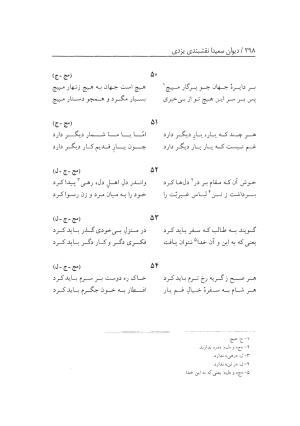 ۲۹۸ / دیوان سعیدا نقشبندی یزدی
۵۰
(مج - ج)
بر دایرهٔ جهان چو پرگار مپیچ هیچ است جهان به هیچ زنهار مپیچ
پس بر سر این هیچ تو از بی‌خبری بسیار مگرد و همچو دستار مپیچ
۵۱
(مج - ج)
هر چند که یار، یار دیگر دارد امّا با ما شمار دیگر دارد
غم نیست که یار یار دیگر دارد چون یار قدیم کار دیگر دارد
۵۲
(مج - ج - ل)
خوش آن که مقام بر در دل‌ها کرد واندر دل اهل دل، رهی پیدا کرد
برداشت ز تن لباس عزّیت را خود را به میان مرد و زن رسوا کرد
۵۳
(مج - ج - ل)
گویند به طالب که سفر باید کرد در منزل بی‌خودی گذر باید کرد
یعنی که به این و آن خدا نتوان یافت فکری دگر و کار دگر باید کرد
۵۴
(مج - ج - ل)
هر صبح ز گریه رخ ترم باید کرد خاک ره دوست بر سرم باید کرد
هر شام به سفرهٔ خیال غم یار افطار به خون جگرم باید کرد
۱- ج: هیچ.
۲- «مج» و «ل»: «در» ندارند.
۳- ل: «رهی» ندارد.
۴- ل: «ز تن» ندارد.
۵- «مج» و «ل»: یعنی که به این خدا.